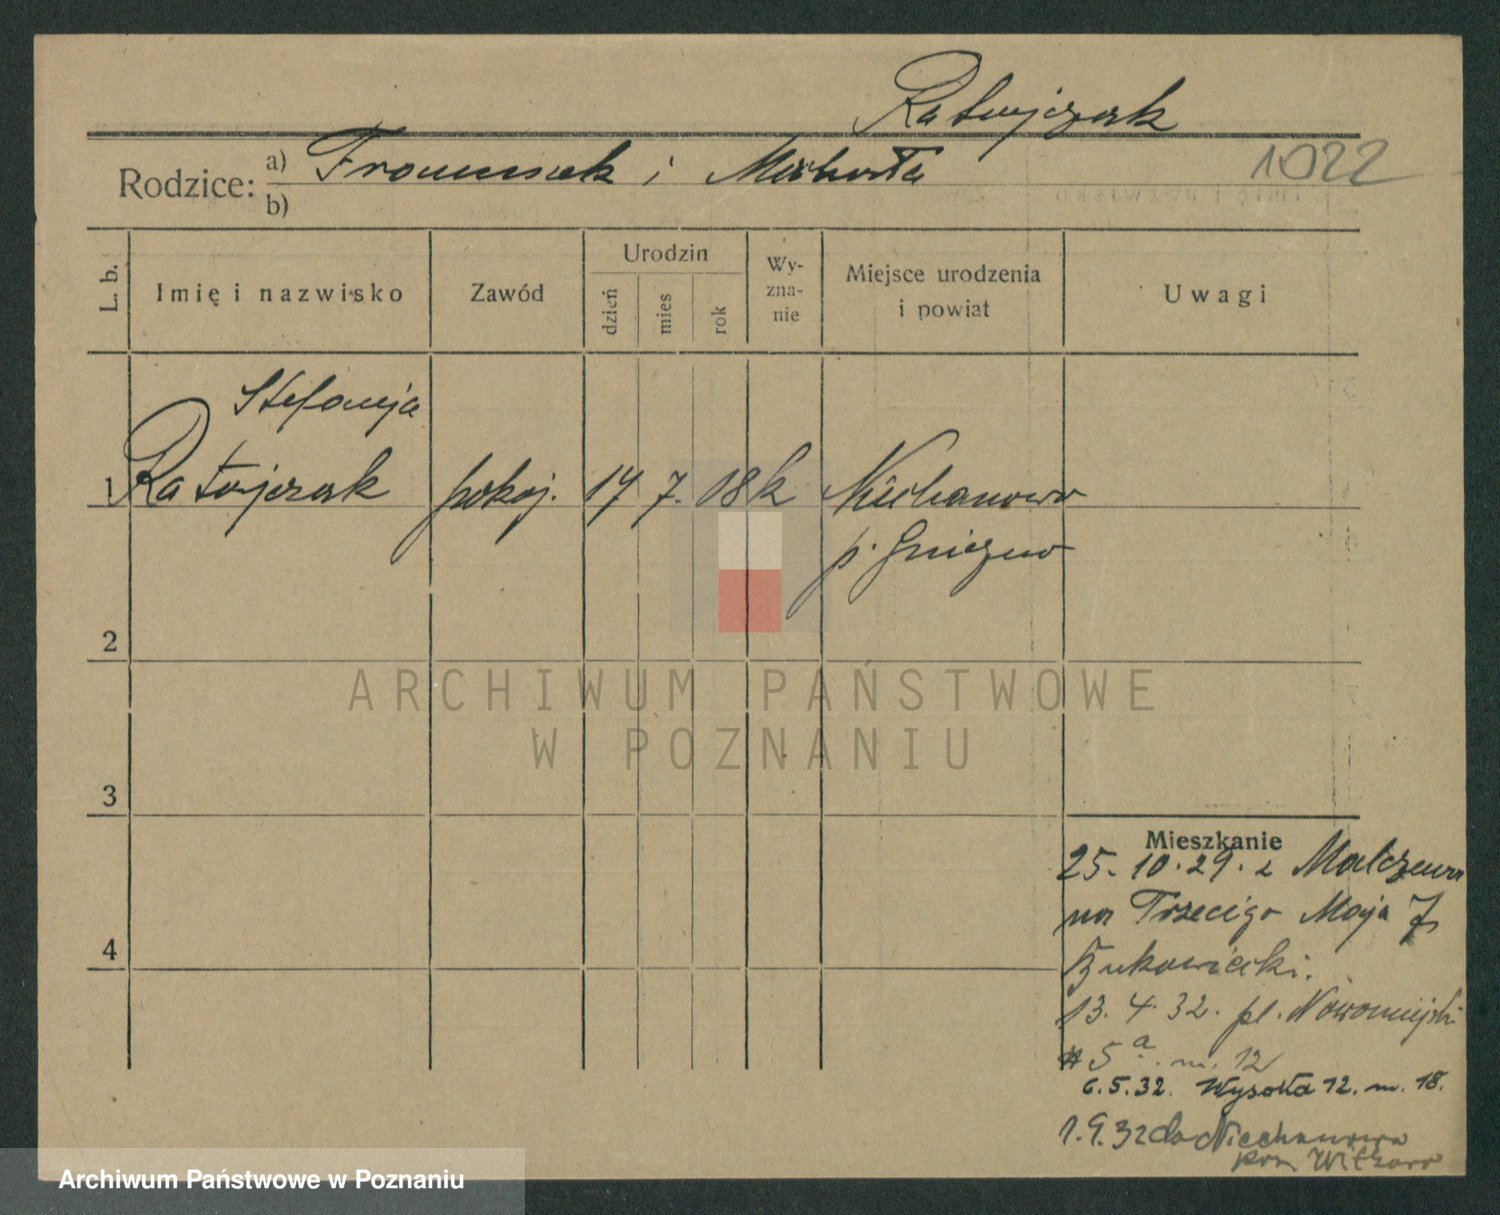 Ratajczak
1022
Rodzice: a) Franciszek i Michalina
b)
L. b.
Imię i nazwisko
Zawód
Urodzin
dzień
mies
rok
Wy-
zna-
nie
Miejsce urodzenia
i powiat
Uwagi
Stefanja
1 Ratajczak pokoj. 14 7. 18 k Niechanowo
p. Gniezno
2
ARCHIWUM PAŃSTWOWE
W POZNANIU
3
Mieszkanie
25. 10. 29. z
na Trzeciego Maja 7
Bukowiecki.
4
13. 4. 32. pl. Nowomiejski
5a. m. 12
6.5.32. Wysoka 12. m. 18.
1.9.32 do Niechanowa
Archiwum Państwowe w Poznaniu